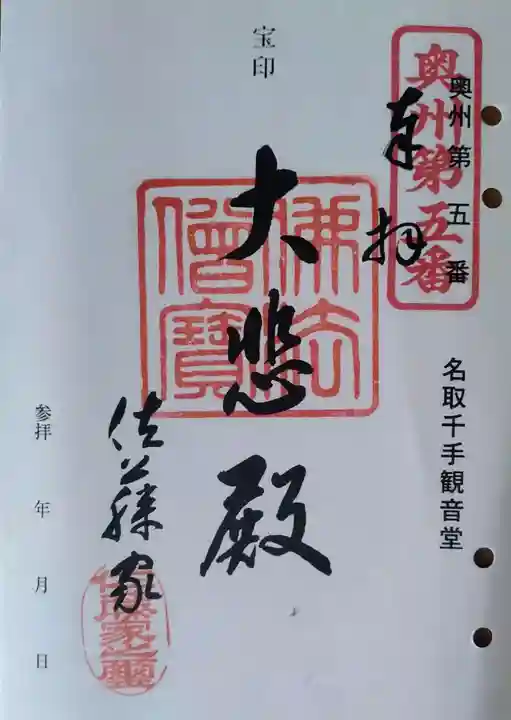 奥州第五番
奥州第五番
名取千手観音堂
奉拝
宝印
大悲殿
佛法
僧寶
佐藤家
佐藤家之璽
参拝 年 月 日